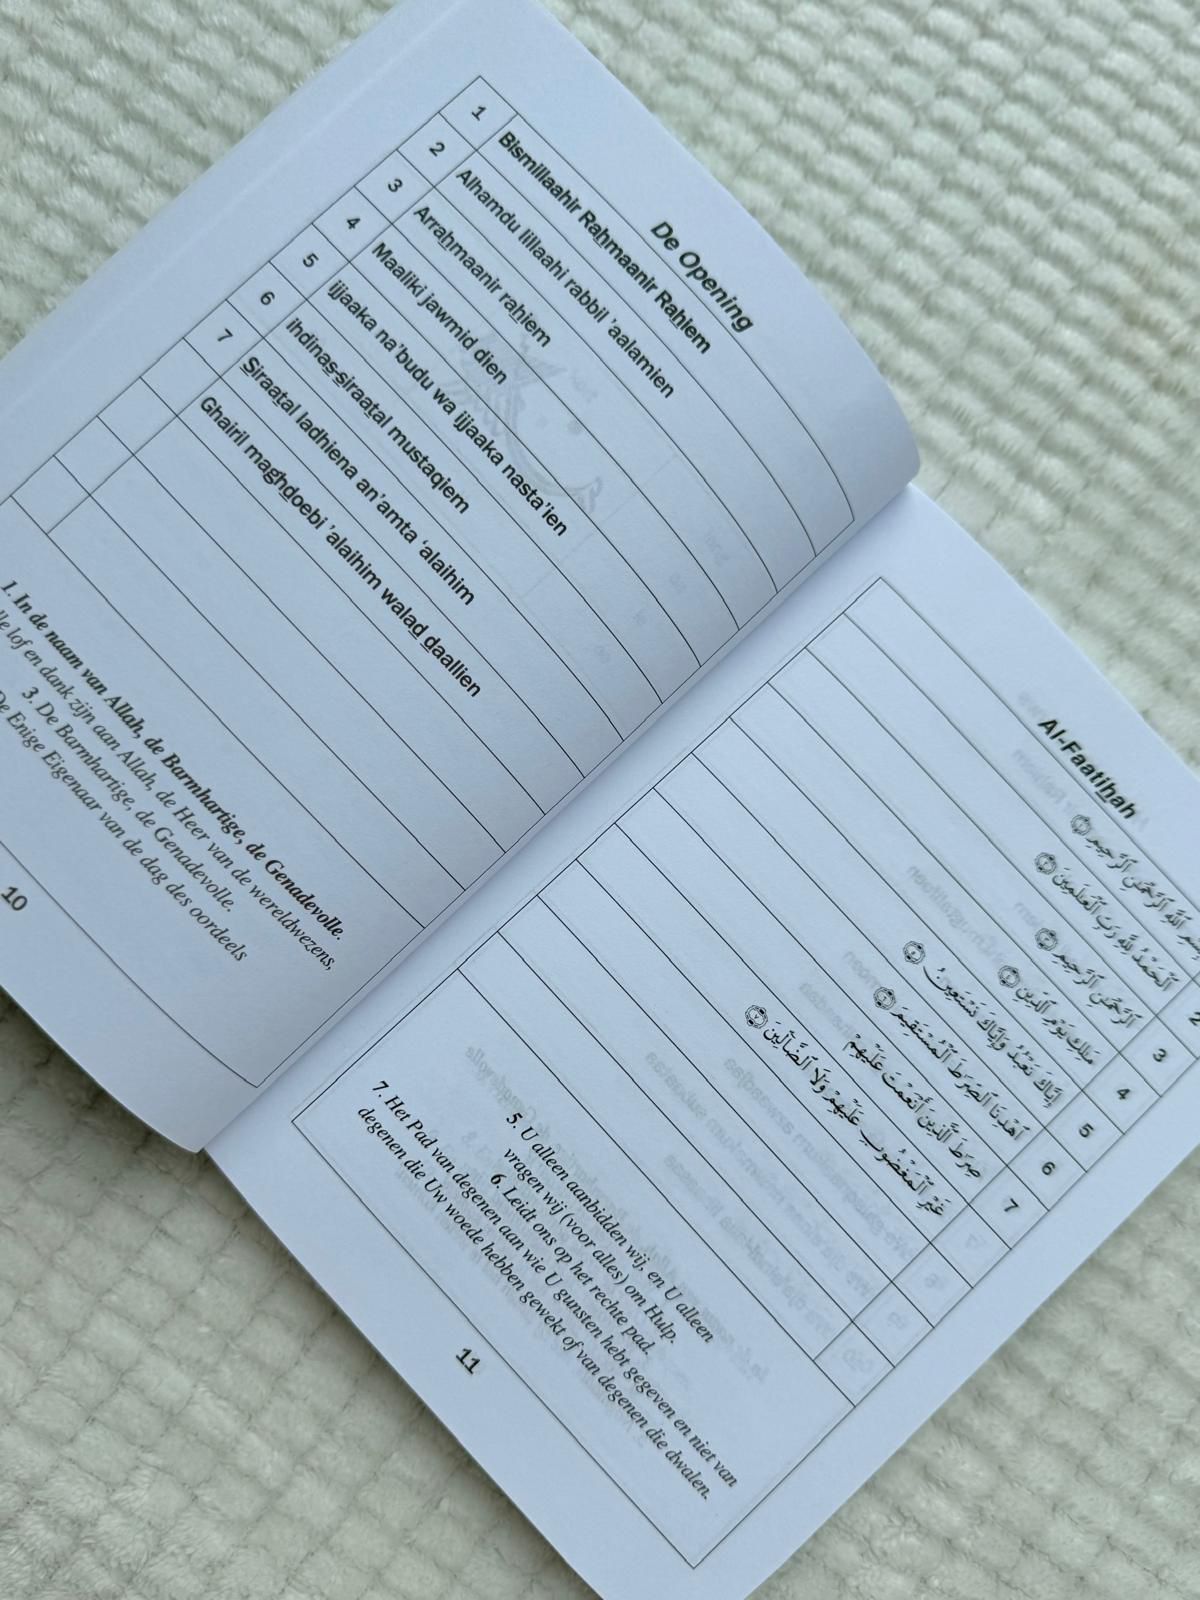 De Opening
1 Bismillaahir Rahmaanir Rahiem
2 Alhamdu lillaahi rabbil 'aalamien
3 Arrahmaanir rahiem
4 Maaliki jawmid dien
5 ijjaaka na'budu wa ijjaaka nasta'ien
6 ihdinas-siraatal mustaqiem
7 Siraatal ladhiena an'amta 'alaihim
Ghairil maghdoebi 'alaihim walad daallien
1. In de naam van Allah, de Barmhartige, de Genadevolle.
lof en dank zijn aan Allah, de Heer van de wereldwezens,
3. De Barmhartige, de Genadevolle.
De Enige Eigenaar van de dag des oordeels
10
Al-Faatihah
بِسْمِ ٱللَّهِ ٱلرَّحْمَٰنِ ٱلرَّحِيمِ ١
ٱلْحَمْدُ لِلَّهِ رَبِّ ٱلْعَٰلَمِينَ ٢ 2
ٱلرَّحْمَٰنِ ٱلرَّحِيمِ ٣ 3
مَٰلِكِ يَوْمِ ٱلدِّينِ ٤ 4
إِيَّاكَ نَعْبُدُ وَإِيَّاكَ نَسْتَعِينُ ٥ 5
ٱهْدِنَا ٱلصِّرَٰطَ ٱلْمُسْتَقِيمَ ٦ 6
صِرَٰطَ ٱلَّذِينَ أَنْعَمْتَ عَلَيْهِمْ 7
غَيْرِ ٱلْمَغْضُوبِ عَلَيْهِمْ وَلَا ٱلضَّآلِّينَ ٧
5. U alleen aanbidden wij, en U alleen
vragen wij (voor alles) om Hulp.
6. Leidt ons op het rechte pad.
7. Het Pad van degenen aan wie U gunsten hebt gegeven en niet van
degenen die Uw woede hebben gewekt of van degenen die dwalen.
11